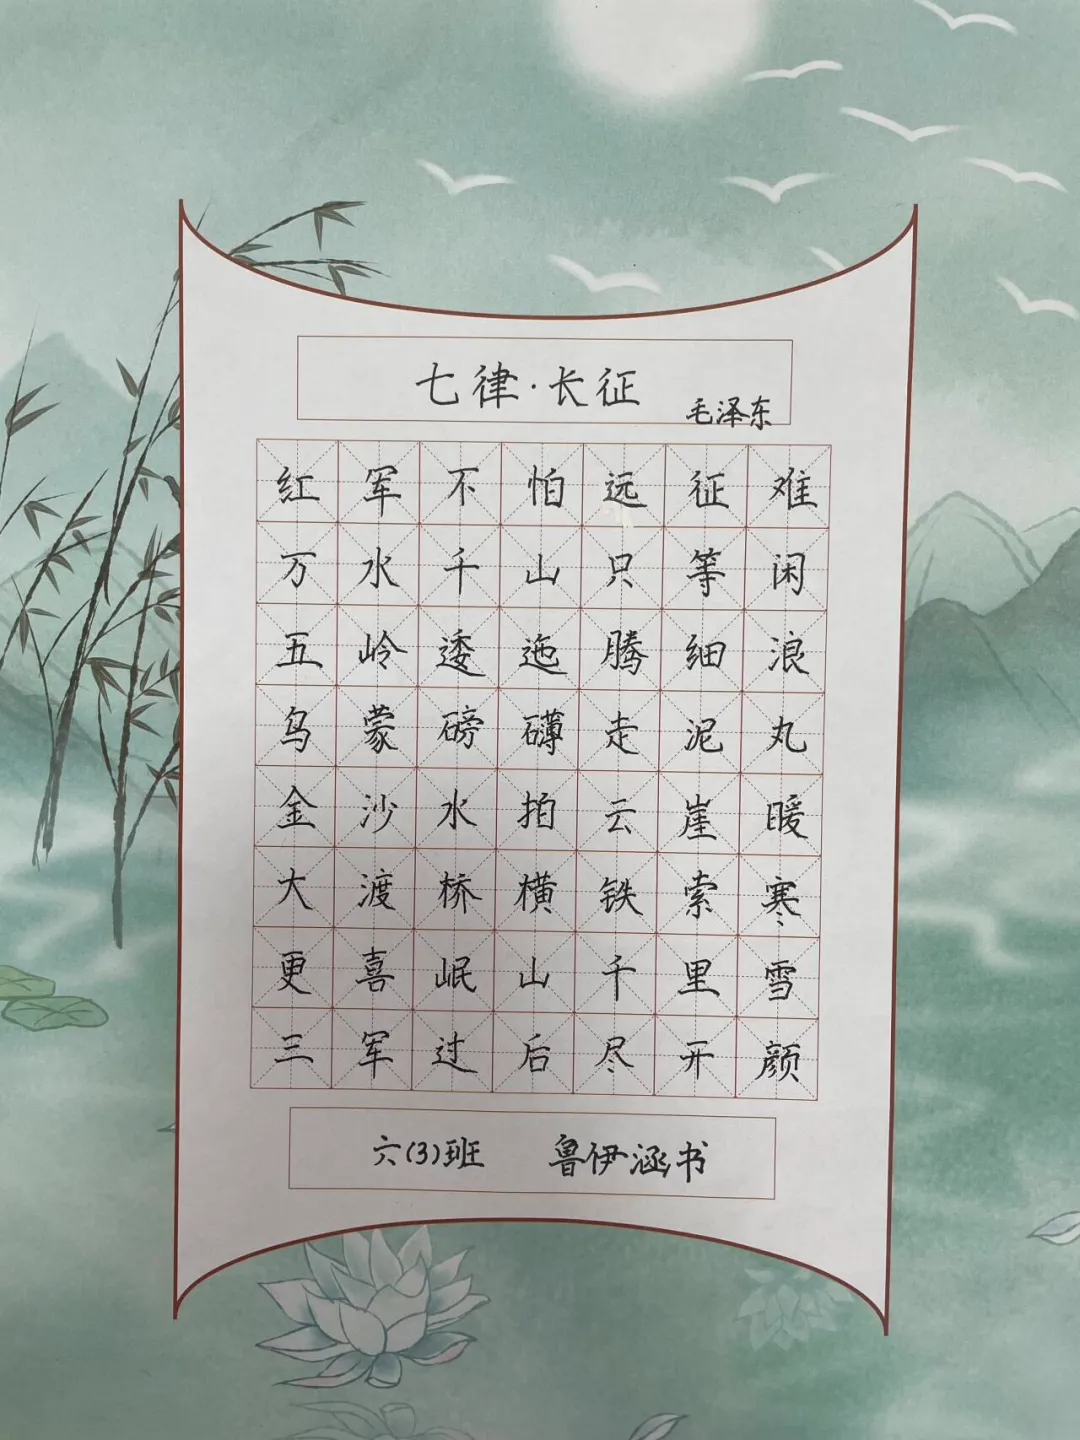 七律·长征
毛泽东
红军不怕远征难
万水千山只等闲
五岭逶迤腾细浪
乌蒙磅礴走泥丸
金沙水拍云崖暖
大渡桥横铁索寒
更喜岷山千里雪
三军过后尽开颜
六(3)班 鲁伊涵书